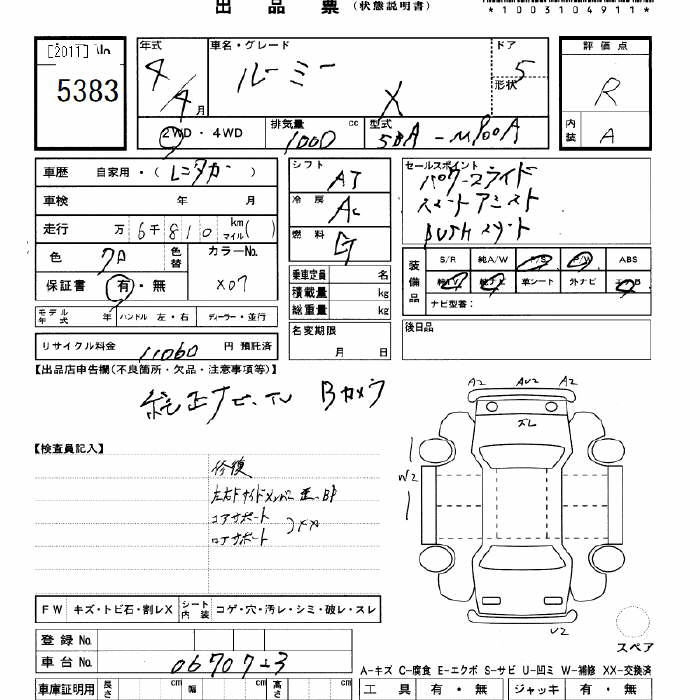 出 品 票 (状態説明書)
*1003104911*
[2017] No
5383
年式 車名・グレード ドア 評価点
4/4月 ルーミー X 5 R
形状
2WD・4WD 排気量 1000 cc 型式 5BA-M900A 内装 A
車歴 自家用・( レンタカー ) シフト AT セールスポイント
パワースライド
車検 年 月 冷房 AC スマートアシスト
走行 万 6千810 km マイル( ) 燃料 G PUSHスタート
色 クロ 色替 カラーNo. X07
装備品 S/R 純A/W P/S P/W ABS
純TV 純ナビ 革シート 外ナビ エアB
ナビ型番:
保証書 有・無 乗車定員 名
積載量 kg
総重量 kg
モデル年式 年 ハンドル 左・右 ディーラー・並行 名変期限 月 日 後日品
リサイクル料金 11060 円 預託済
【出品店申告欄(不良箇所・欠品・注意事項等)】
純正ナビ、TV Bカメラ
A2 AU2 A2
ズレ
【検査員記入】
修復
W2
コアサポート
ロアサポート
U2
スペア
FW キズ・トビ石・割レX シート内装 コゲ・穴・汚レ・シミ・破レ・スレ
登録No.
車台No. 06707-3
A-キズ C-腐食 E-エクボ S-サビ U-凹ミ W-補修 XX-交換済
車庫証明用 長さ cm 幅 cm 高さ cm 工具 有・無 ジャッキ 有・無